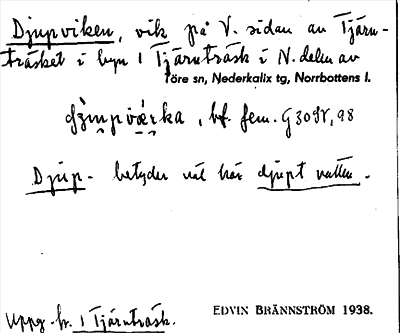 Djupviken, vik på V. sidan av Tjärn-
träsket i byn i Tjärnträsk i N. delen av
Töre sn, Nederkalix tg, Norrbottens l.
, bf. fem. G 30 98
Djup- betyder väl här djupt vatten.
Uppg. fr. i Tjärnträsk.
EDVIN BRÄNNSTRÖM 1938.